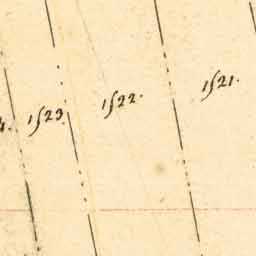 1523.
1522.
1521.